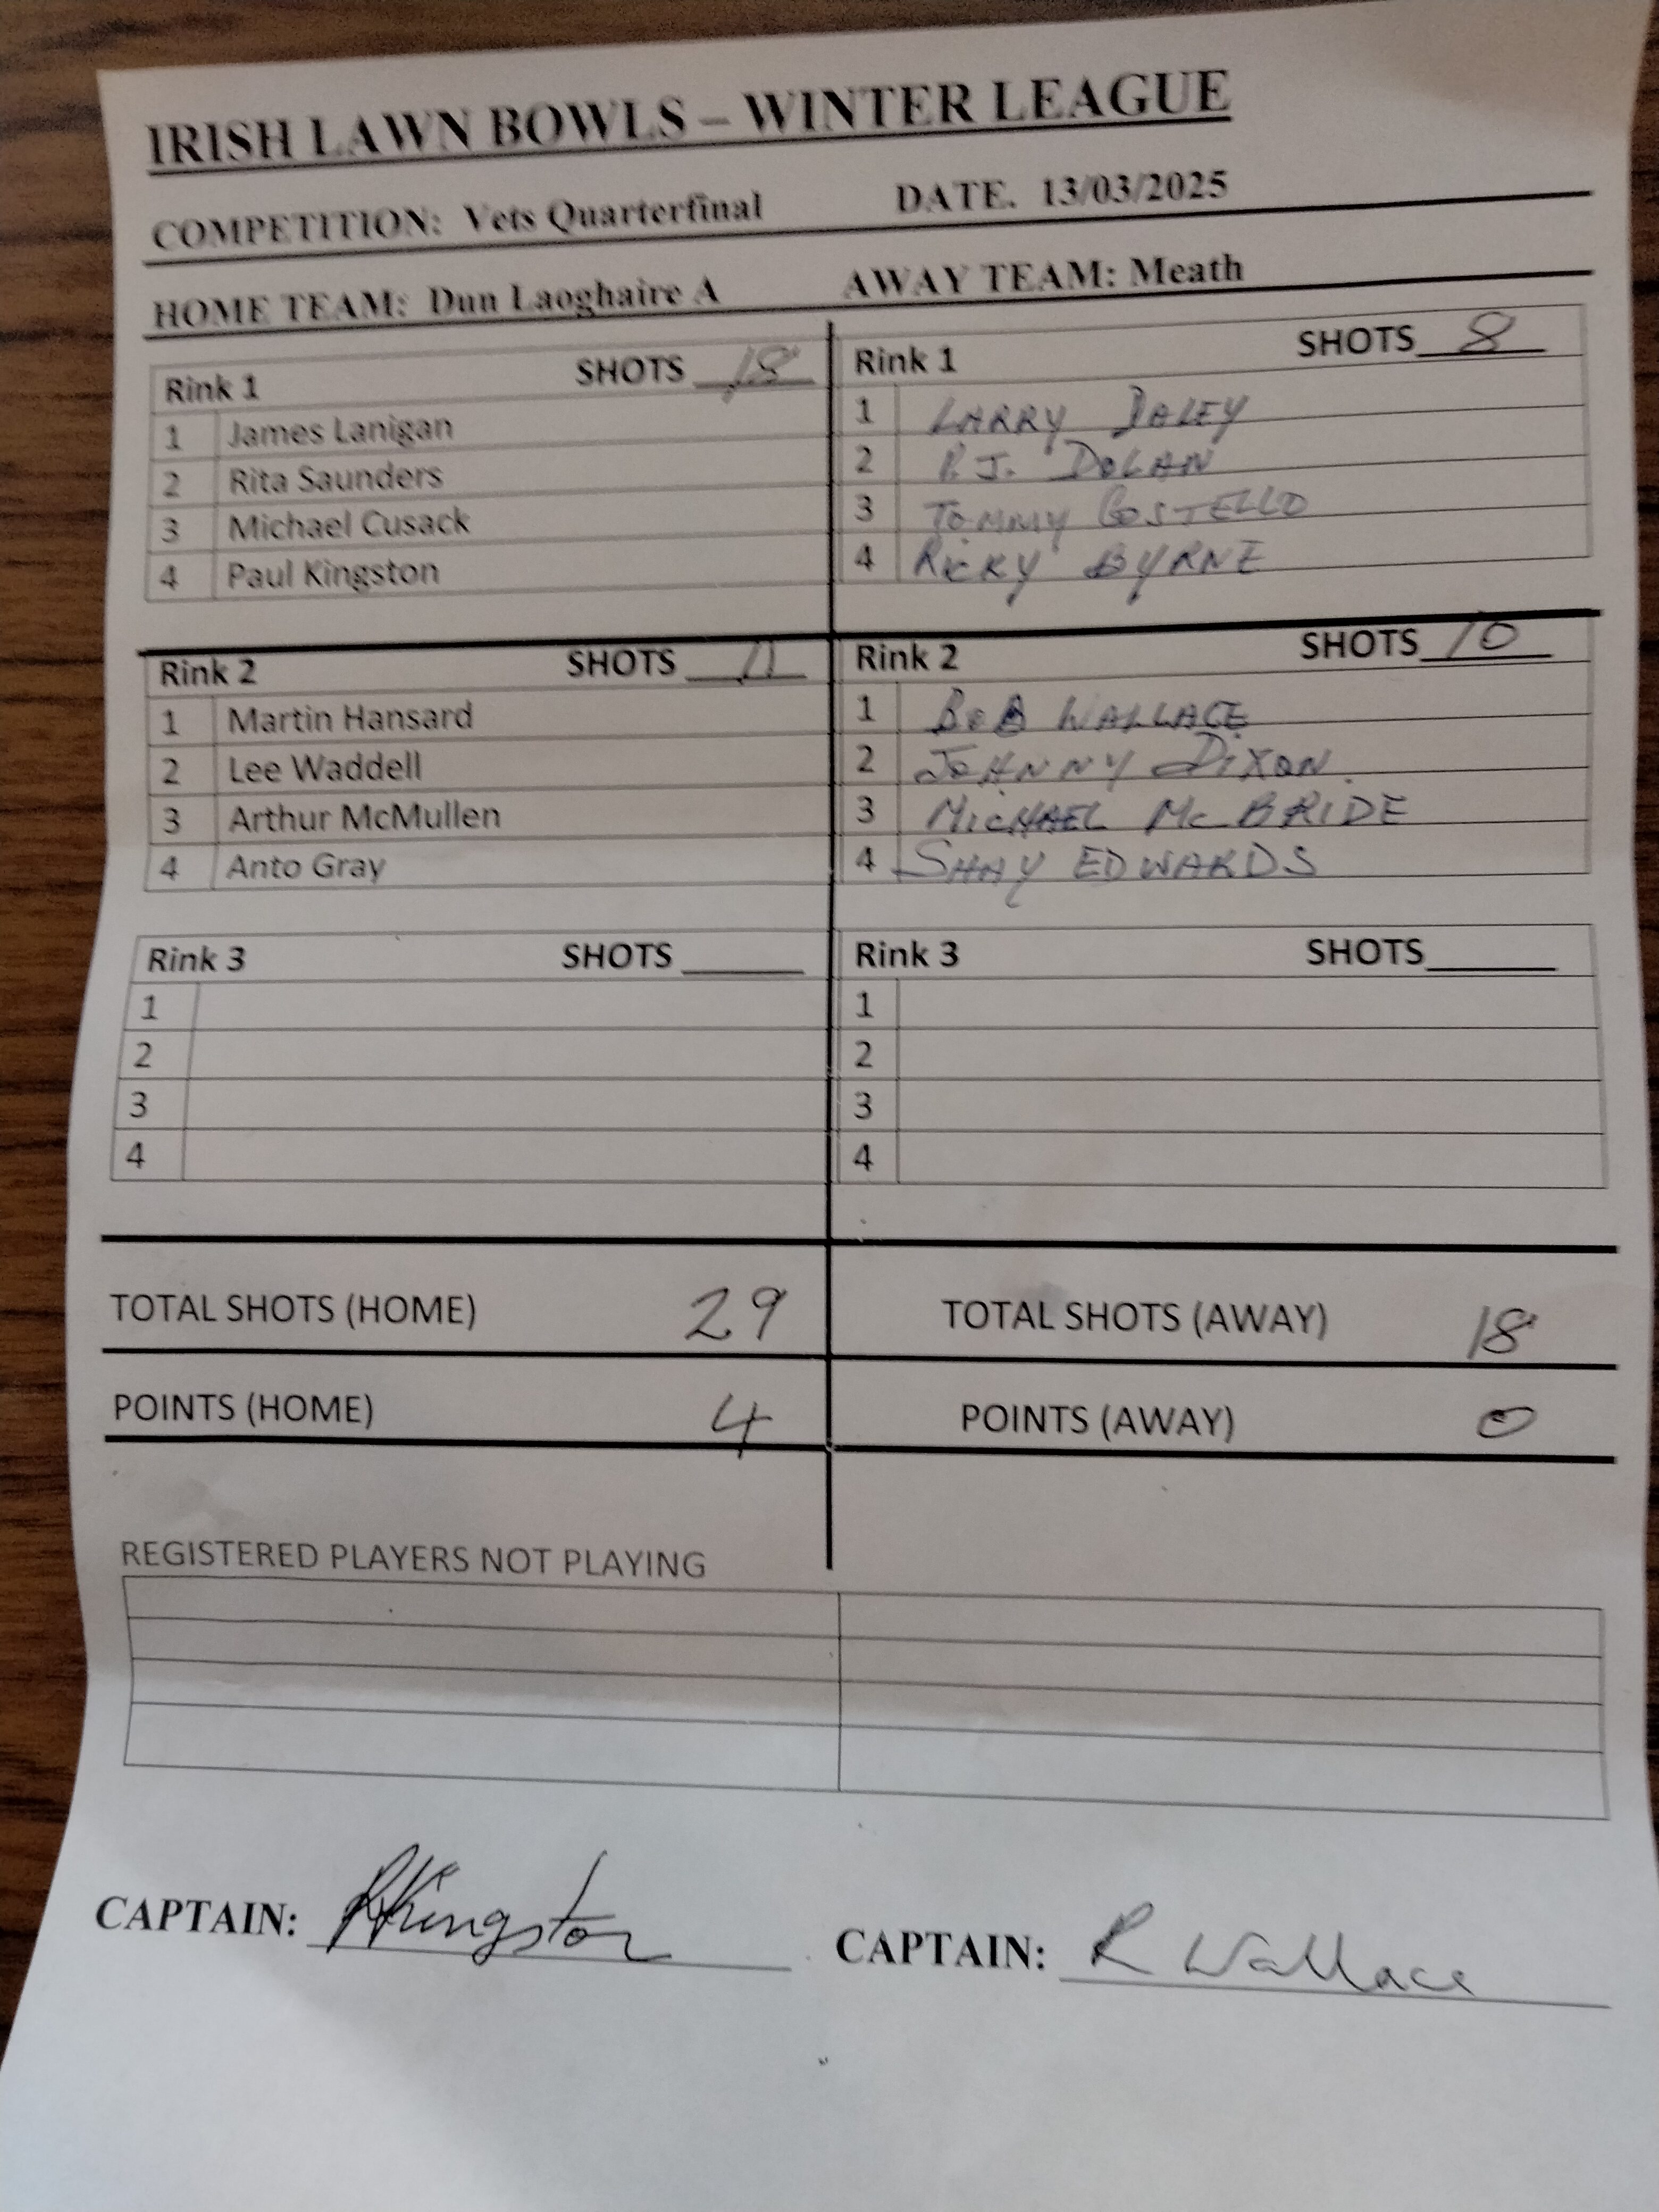 IRISH LAWN BOWLS – WINTER LEAGUE
COMPETITION: Vets Quarterfinal DATE. 13/03/2025
HOME TEAM: Dun Laoghaire A AWAY TEAM: Meath
Rink 1 SHOTS 18
1 James Lanigan
2 Rita Saunders
3 Michael Cusack
4 Paul Kingston
Rink 1 SHOTS 8
1 LARRY DALEY
2 P.J. DOLAN
3 TOMMY COSTELLO
4 RICKY BYRNE
Rink 2 SHOTS 11
1 Martin Hansard
2 Lee Waddell
3 Arthur McMullen
4 Anto Gray
Rink 2 SHOTS 10
1 BOB WALLACE
2 JOHNNY DIXON.
3 MICHAEL Mc BRIDE
4 SHAY EDWARDS
Rink 3 SHOTS
1
2
3
4
Rink 3 SHOTS
1
2
3
4
TOTAL SHOTS (HOME) 29 TOTAL SHOTS (AWAY) 18
POINTS (HOME) 4 POINTS (AWAY) 0
REGISTERED PLAYERS NOT PLAYING
CAPTAIN: PKingston CAPTAIN: R Wallace